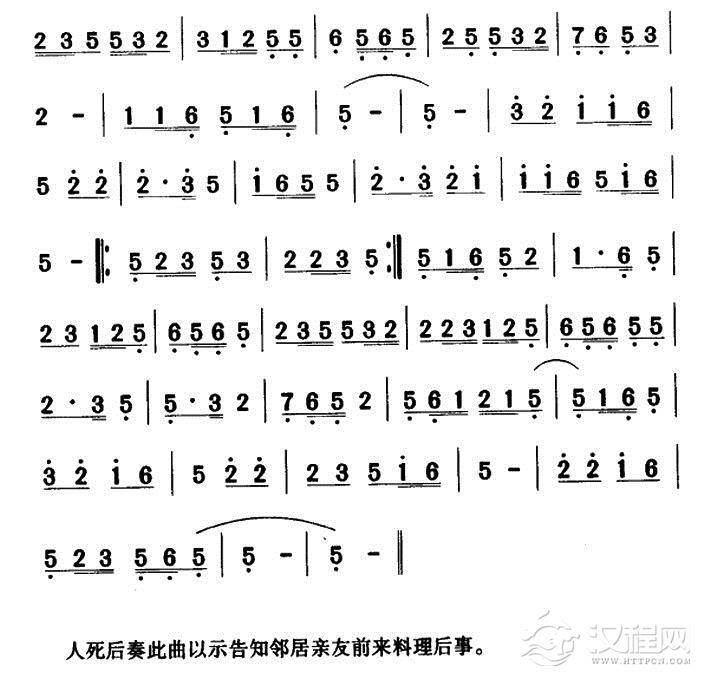 2 3 5 5 3 2 | 3 1 2 5 5 | 6 5 6 5 | 2 5 5 3 2 | 7 6 5 3 |
2 - | 1 1 6 5 1 6 | 5 - | 5 - | 3 2 1 1 6 |
5 2 2 | 2 · 3 5 | 1 6 5 5 | 2 · 3 2 1 | 1 1 6 5 1 6 |
5 - ‖: 5 2 3 5 3 | 2 2 3 5 :‖ 5 1 6 5 2 | 1 · 6 5 |
2 3 1 2 5 | 6 5 6 5 | 2 3 5 5 3 2 | 2 2 3 1 2 5 | 6 5 6 5 5 |
2 · 3 5 | 5 · 3 2 | 7 6 5 2 | 5 6 1 2 1 5 | 5 1 6 5 |
3 2 1 6 | 5 2 2 | 2 3 5 1 6 | 5 - | 2 2 1 6 |
5 2 3 5 6 5 | 5 - | 5 - ‖
人死后奏此曲以示告知邻居亲友前来料理后事。
汉程网
WWW.HTTPCN.COM